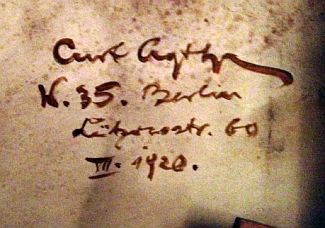 Curt Agthe
W. 35. Berlin
Lützowstr. 60
III. 1920.